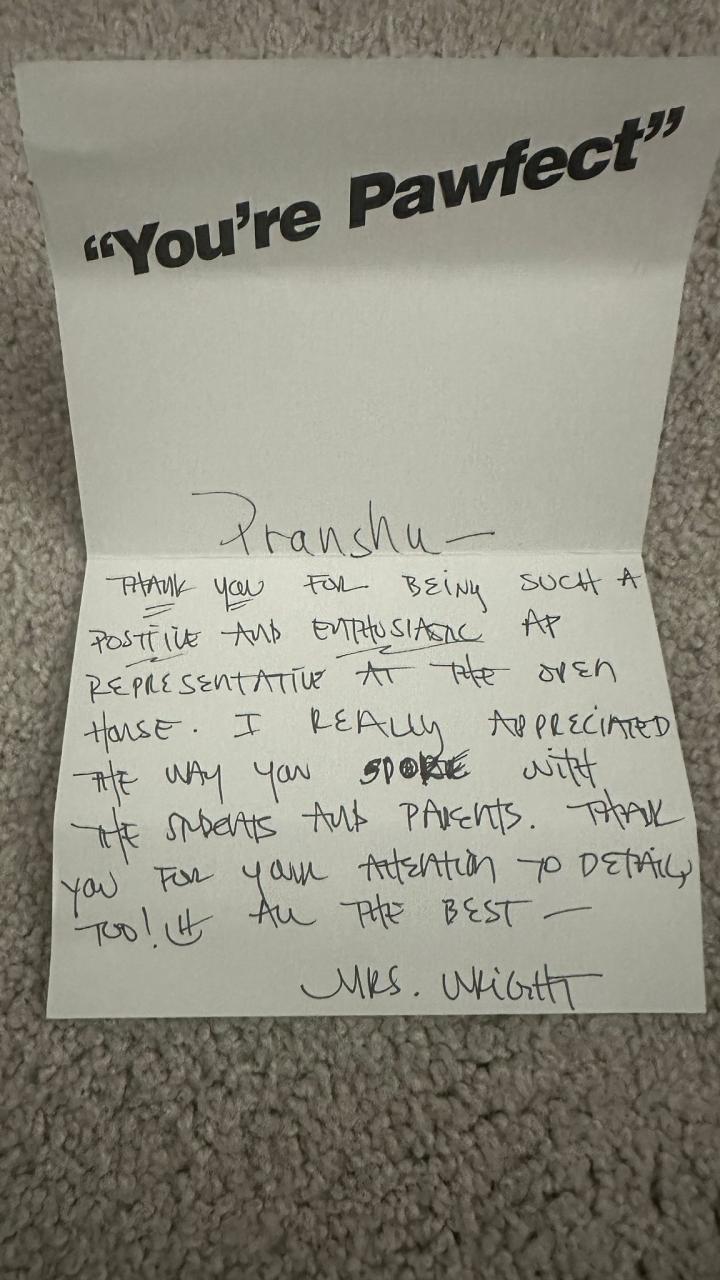 “You’re Pawfect”
Pranshu —
THANK YOU FOR BEING SUCH A
POSITIVE AND ENTHUSIASTIC AP
REPRESENTATIVE AT THE OPEN
HOUSE. I REALLY APPRECIATED
THE WAY YOU SPOKE WITH
THE STUDENTS AND PARENTS. THANK
YOU FOR YOUR ATTENTION TO DETAIL,
TOO! ALL THE BEST —
MRS. WRIGHT